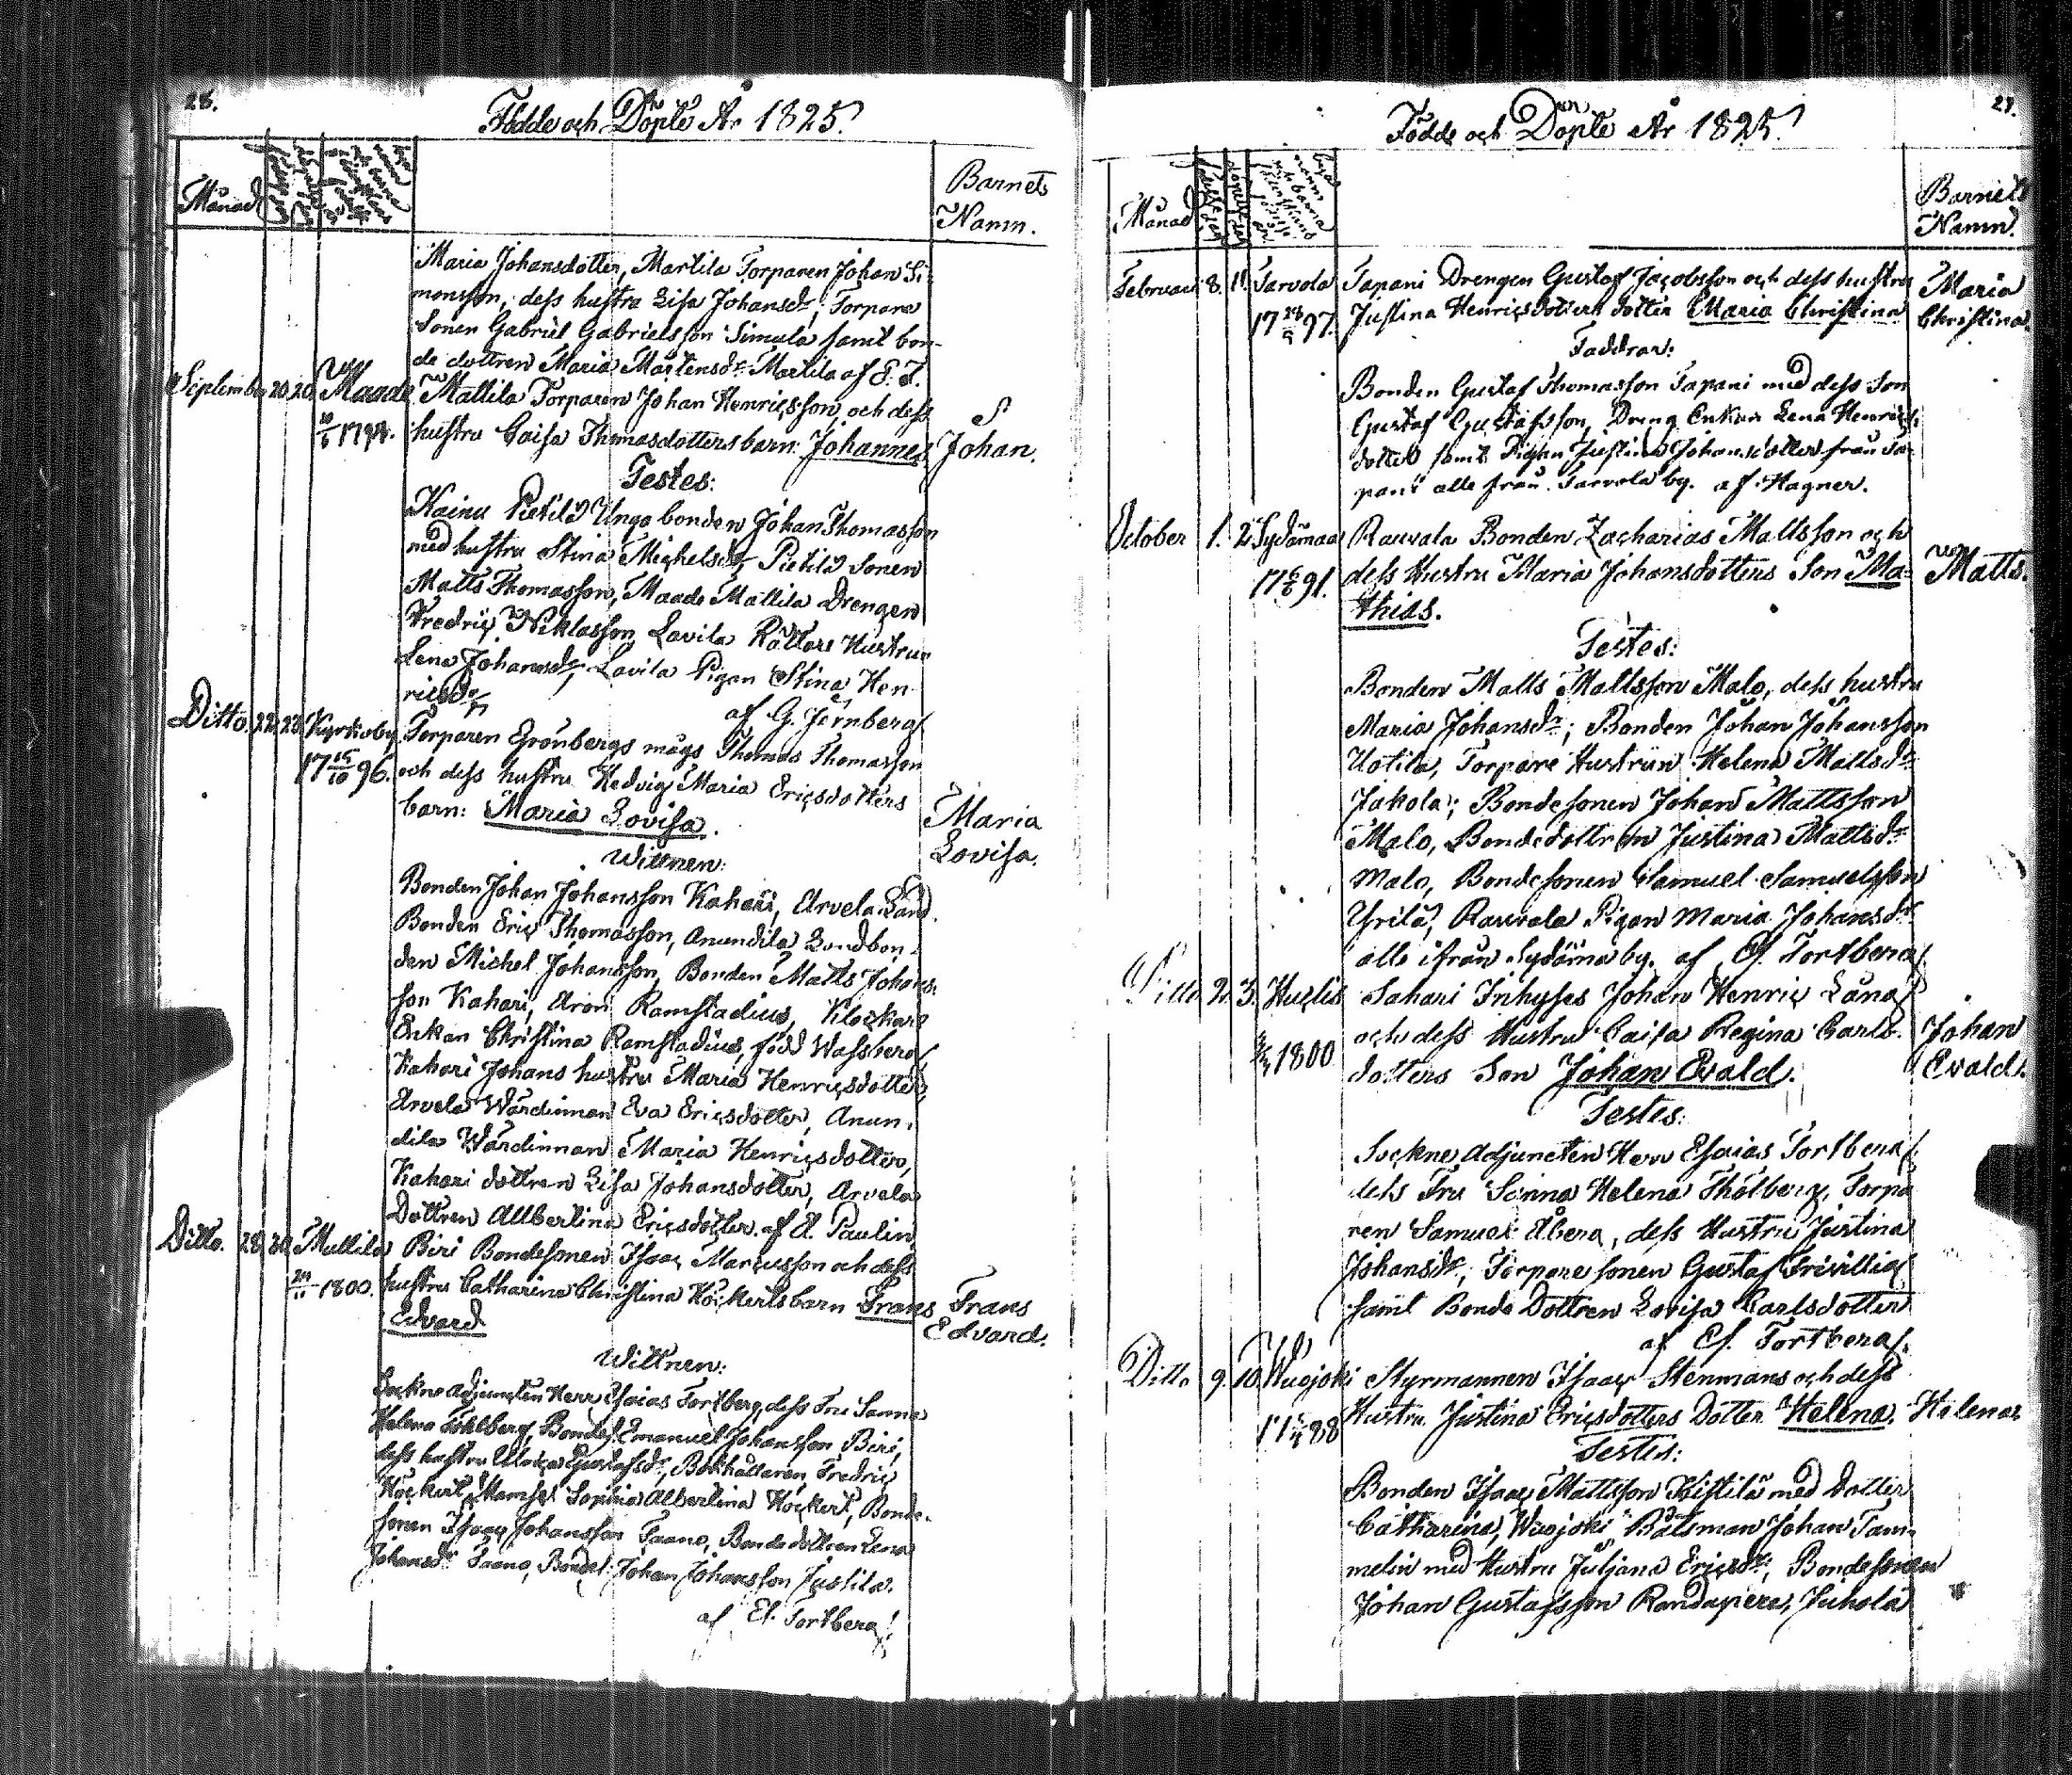 28.
Födde och Döpte År 1825.
Månad
Barnets
Namn.
Maria Johansdotter, Martila Torparen Johan Si-
monsson, dess hustru Lisa Johansdr, Torpare
Sonen Gabriel Gabrielsson Simula samt bon-
de dottren Maria Mårtensdr Martila af E. F.
September 20. 20. Maade Mattila Torparen Johan Henricsson, och dess
hustru Caisa Thomasdotters barn: Johannes. Johan.
Testes:
Kainu Pietilä Unga bonden Johan Thomasson
med hustru Stina Michelsdr, Pietilä Sonen
Matts Thomasson, Maade Mattila Drengen
Fredric Niklasson, Lavila Rättars Hustru
Lena Johansdr, Lavila Pigan Stina Hen-
ricsdr
af G. Jernberg.
Ditto. 22. 23. Kyrkoby Torparen Grönbergs mågs Thomas Thomasson
17 15/10 96. och dess hustru Hedvig Maria Ericsdotters
barn: Maria Lovisa.
Maria
Lovisa.
Wittnen:
Bonden Johan Johansson Kahari, Arvela Land
Bonden Eric Thomasson, Anundila Landbon-
den Michel Johansson, Bonden Matts Johans-
son Kahari, Aron Ramstadius, Klockars
Enkan Christina Ramstadius, född Wassberg,
Kahari Johans hustru Maria Henricsdotter,
Arvela Wärdinnan Eva Ericsdotter, Anun-
dila Wärdinnan Maria Henricsdotter,
Kahari dottren Lisa Johansdotter, Arvela
Dottren Albertina Ericsdotter. af A. Paulin
Ditto. 28. 30. Mullila Biri Bondesonen Isaac Marcusson och dess
1800. hustru Catharina Christina Höckerts barn Frans Frans
Edvard Edvard.
Wittnen:
Sockne adjuncten Herr Esaias Tortberg, dess Fru Sanna
Helena Thölberg, Bondes. Emanuel Johansson Biri,
dess hustru Ulrica Gustafsdr, Bokhållaren Fredric
Höckert, Mamsel Sophia Albertina Höckert, Bonde-
sonen Isaac Johansson Taano, Bonde dottren Lena
Johansdr Taano, Bondes. Johan Johansson Justila.
af Es. Tortberg.
Födde och Döpte År 1825.
Månad
Barnets
Namn.
Februari 8. 11. Tarvola Tapani Drengen Gustaf Jacobsson och dess hustru Maria
97. Justina Henricsdotters dotter Maria Christina Christina.
Faddrar:
Bonden Gustaf Thomasson Tapani med dess Son
Gustaf Gustafsson, Dreng Enkan Lena Henrics-
dotter samt Pigan Justina Johansdotter från Ta-
pani alle från Tarvola by. af Hagner.
October 1. 2. Sydämaa Rauvala Bonden Zacharias Mattsson och
91. dess Hustru Maria Johansdotters Son Ma- Matts.
thias.
Testes:
Bonden Matts Mattsson Malo, dess hustru
Maria Johansdr; Bonden Johan Johansson
Uotila, Torpare Hustrun Helena Mattsdr
Jakola; Bondesonen Johan Mattsson
Malo, Bondedottren Justina Mattsdr
Malo, Bondesonen Samuel Samuelsson
Yrilä, Rauvala Pigan Maria Johansdr
alle ifrån Sydäma by. af Es. Tortberg.
Ditto 2. 3. Huclis Sahari Inhyses Johan Henric Lång
och dess Hustru Caisa Regina Carls-
1800 dotters Son Johan Evald.
Johan
Evald.
Testes:
Sockne Adjuncten Herr Esaias Tortberg,
dess Fru Sanna Helena Thölberg, Torpa
ren Samuel Åberg, dess Hustru Justina
Johansdr, Torpare sonen Gustaf Frivillig
samt Bonde Dottren Lovisa Carlsdotter
af Es. Tortberg.
Ditto 9. 10. Wuojoki Styrmannen Isaac Stenmans och dess
88 Hustru Justina Ericsdotters Dotter Helena. Helena.
Testes:
Bonden Isaac Mattsson Kistilä med Dotter
Catharina, Wuojoki Båtsman Johan Tam-
melin med Hustru Juljana Ericsdr, Bondesonen
Johan Gustafsson Randapere, Juhola